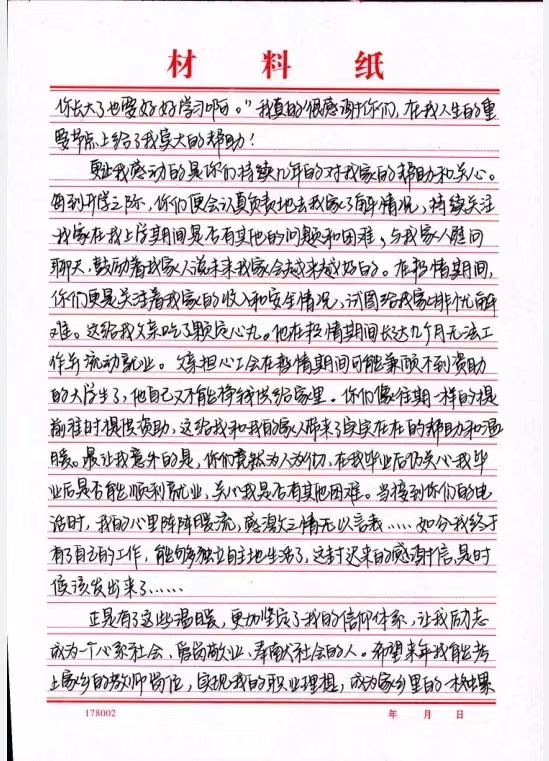 材料纸
你长大了也要好好学习啊。”我真的很感谢你们，在我人生的重
要节点上给了我莫大的帮助！
更让我感动的是你们持续几年的对我家的帮助和关心。
每到开学之际，你们便会认真负责地去我家了解情况，持续关注
我家在我上学期间是否有其他的问题和困难，与我家人慰问
聊天，鼓励着我家人说未来我家会越来越好的。在疫情期间，
你们更是关注着我家的收入和安全情况，试图给我家排忧解
难。这给我父亲吃了颗定心丸。他在疫情期间长达几个月无法工
作并流动就业。父亲担心工会在疫情期间可能兼顾不到资助
的大学生了，他自己又不能挣钱供给家里。你们像往期一样的提
前准时提供资助，这给我和我的家人带来了实实在在的帮助和温
暖。最让我意外的是，你们竟然为人为切，在我毕业后仍关心我毕
业后是否能顺利就业，关心我是否有其他困难。当接到你们的电
话时，我的心里阵阵暖流，感激之情无以言表……如今我终于
有了自己的工作，能够独立自主地生活了，这封迟来的感谢信，是时
候该发出来了……
正是有了这些温暖，更加坚定了我的信仰体系，让我励志
成为一个心系社会、爱岗敬业、奉献社会的人。希望来年我能考
上家乡的教师岗位，实现我的职业理想，成为家乡里的一枚坚果
178002 年 月 日